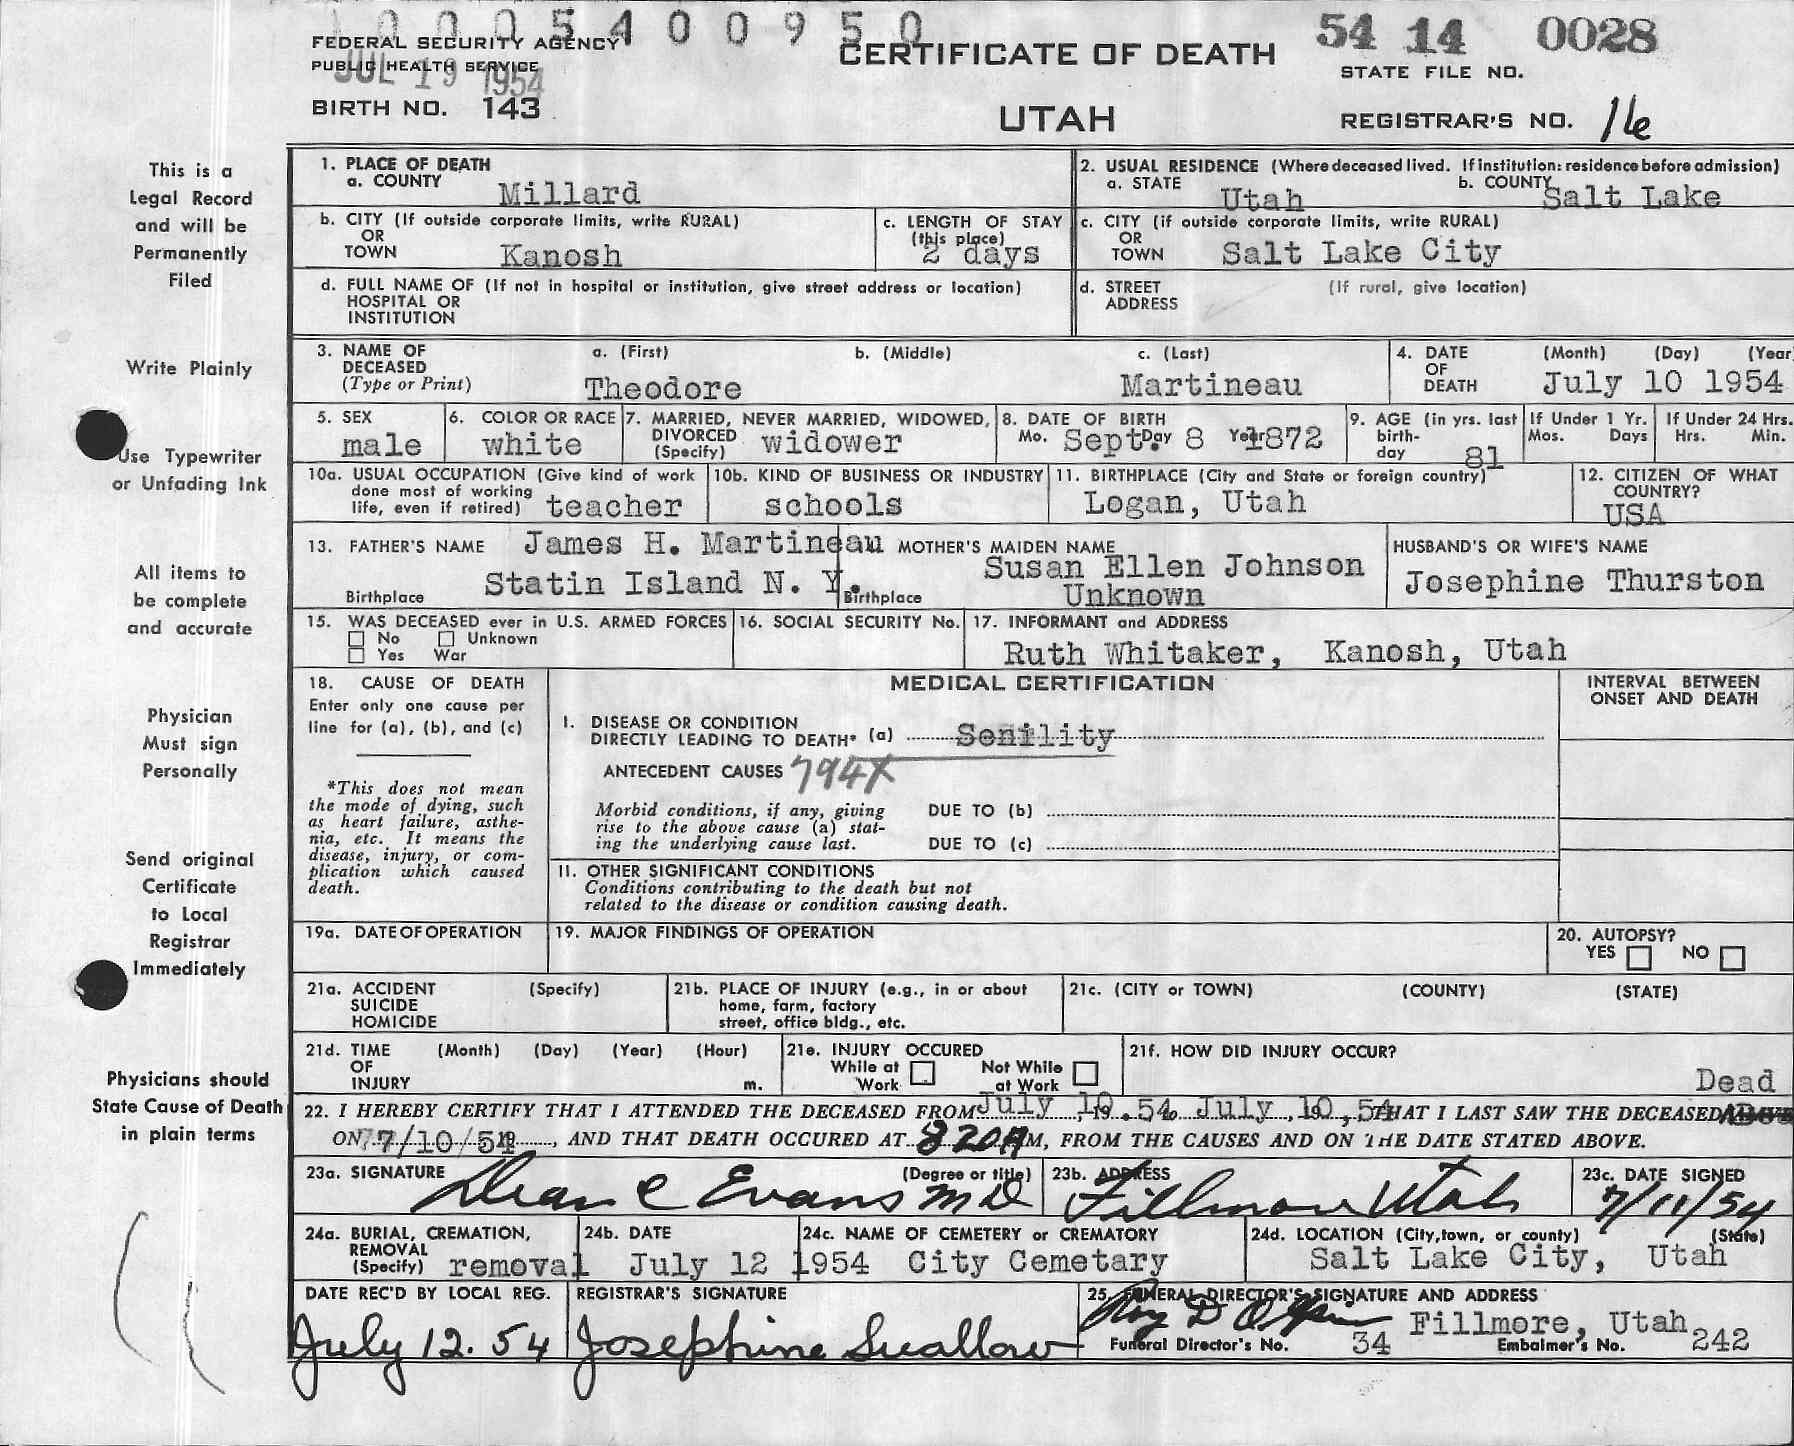 1000540 0950
FEDERAL SECURITY AGENCY
PUBLIC HEALTH SERVICE
JUL 19 1954
BIRTH NO. 143
CERTIFICATE OF DEATH
UTAH
54 14 0028
STATE FILE NO.
REGISTRAR'S NO. 16
This is a
Legal Record
and will be
Permanently
Filed
Write Plainly
Use Typewriter
or Unfading Ink
All items to
be complete
and accurate
Physician
Must sign
Personally
Send original
Certificate
to Local
Registrar
Immediately
Physicians should
State Cause of Death
in plain terms
1. PLACE OF DEATH
a. COUNTY Millard
2. USUAL RESIDENCE (Where deceased lived. If institution: residence before admission)
a. STATE Utah b. COUNTY Salt Lake
b. CITY (If outside corporate limits, write RURAL)
OR
TOWN Kanosh
c. LENGTH OF STAY
(this place)
2 days
c. CITY (if outside corporate limits, write RURAL)
OR
TOWN Salt Lake City
d. FULL NAME OF (If not in hospital or institution, give street address or location)
HOSPITAL OR
INSTITUTION
d. STREET (If rural, give location)
ADDRESS
3. NAME OF
DECEASED
(Type or Print)
a. (First) b. (Middle) c. (Last)
Theodore Martineau
4. DATE (Month) (Day) (Year
OF
DEATH July 10 1954
5. SEX
male
6. COLOR OR RACE
white
7. MARRIED, NEVER MARRIED, WIDOWED,
DIVORCED
(Specify) widower
8. DATE OF BIRTH
Mo. Sept. Day 8 Year 1872
9. AGE (in yrs. last
birth-
day 81
If Under 1 Yr.
Mos. Days
If Under 24 Hrs.
Hrs. Min.
10a. USUAL OCCUPATION (Give kind of work
done most of working
life, even if retired) teacher
10b. KIND OF BUSINESS OR INDUSTRY
schools
11. BIRTHPLACE (City and State or foreign country)
Logan, Utah
12. CITIZEN OF WHAT
COUNTRY?
USA
13. FATHER'S NAME James H. Martineau
Birthplace Statin Island N. Y.
MOTHER'S MAIDEN NAME
Susan Ellen Johnson
Birthplace Unknown
HUSBAND'S OR WIFE'S NAME
Josephine Thurston
15. WAS DECEASED ever in U.S. ARMED FORCES
No Unknown
Yes War
16. SOCIAL SECURITY No.
17. INFORMANT and ADDRESS
Ruth Whitaker, Kanosh, Utah
18. CAUSE OF DEATH
Enter only one cause per
line for (a), (b), and (c)
*This does not mean
the mode of dying, such
as heart failure, asthe-
nia, etc. It means the
disease, injury, or com-
plication which caused
death.
MEDICAL CERTIFICATION
INTERVAL BETWEEN
ONSET AND DEATH
I. DISEASE OR CONDITION
DIRECTLY LEADING TO DEATH* (a) Senility
ANTECEDENT CAUSES 794X
Morbid conditions, if any, giving
rise to the above cause (a) stat-
ing the underlying cause last.
DUE TO (b)
DUE TO (c)
II. OTHER SIGNIFICANT CONDITIONS
Conditions contributing to the death but not
related to the disease or condition causing death.
19a. DATE OF OPERATION
19. MAJOR FINDINGS OF OPERATION
20. AUTOPSY?
YES NO
21a. ACCIDENT (Specify)
SUICIDE
HOMICIDE
21b. PLACE OF INJURY (e.g., in or about
home, farm, factory
street, office bldg., etc.
21c. (CITY or TOWN) (COUNTY) (STATE)
21d. TIME (Month) (Day) (Year) (Hour)
OF
INJURY m.
21e. INJURY OCCURED
While at Work Not While at Work
21f. HOW DID INJURY OCCUR?
Dead
22. I HEREBY CERTIFY THAT I ATTENDED THE DECEASED FROM July 10, 54 July 10, 54 THAT I LAST SAW THE DECEASED
ON 7/10/54, AND THAT DEATH OCCURED AT 820AM, FROM THE CAUSES AND ON THE DATE STATED ABOVE.
23a. SIGNATURE (Degree or title)
Dean C Evans MD
23b. ADDRESS
Fillmore Utah
23c. DATE SIGNED
7/11/54
24a. BURIAL, CREMATION,
REMOVAL
(Specify) removal
24b. DATE
July 12 1954
24c. NAME OF CEMETERY or CREMATORY
City Cemetary
24d. LOCATION (City, town, or county) (State)
Salt Lake City, Utah
DATE REC'D BY LOCAL REG.
July 12. 54
REGISTRAR'S SIGNATURE
Josephine Swallow
25. FUNERAL DIRECTOR'S SIGNATURE AND ADDRESS
Roy D Fillmore, Utah
Funeral Director's No. 34 Embalmer's No. 242